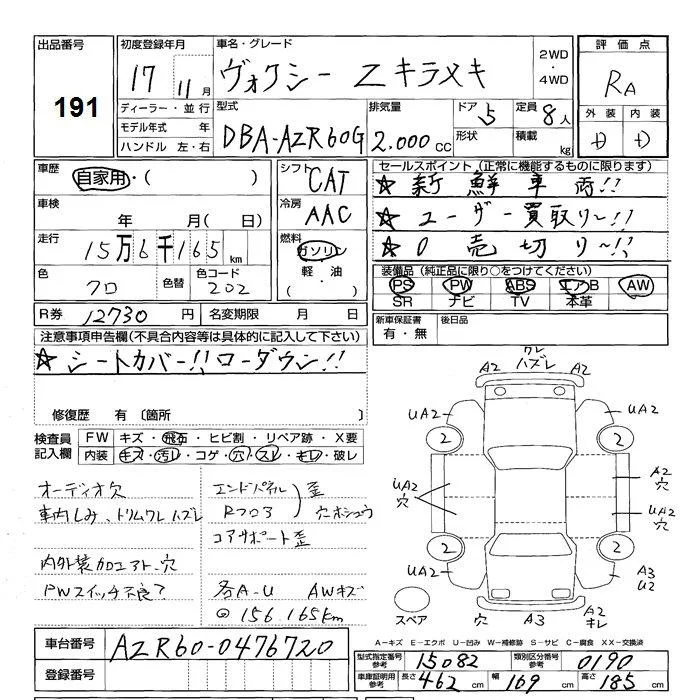 出品番号
191
初度登録年月
17 11 月
車名・グレード
ヴォクシー Z キラメキ
2WD
・
4WD
評価点
RA
外装 内装
D D
ディーラー・並行
モデル年式 年
ハンドル 左・右
型式
DBA-AZR60G
排気量
2.000 CC
ドア 5
形状
定員 8 人
積載 kg
車歴
自家用・( )
車検
年 月( 日)
走行
15万6千165 km
色
クロ
色替
色コード
202
シフト
CAT
冷房
AAC
燃料
ガソリン
・
軽・油
( )
セールスポイント(正常に機能するものに限ります)
☆ 新鮮車両!!
☆ ユーザー買取り~!!
☆ 0 売切り~!!
装備品(純正品に限り○をつけてください)
PS PW ABS エアB AW
SR ナビ TV 本革
新車保証書
有・無
後日品
R券 12730 円
名変期限 月 日
注意事項申告欄(不具合内容等は具体的に記入して下さい)
☆ シートカバー!! ローダウン!!
修復歴 有 〔箇所 〕
検査員
記入欄
FW キズ・飛石・ヒビ割・リペア跡・X要
内装 キズ・汚レ・コゲ・穴・スレ・キレ・破レ
オーディオ欠
車内しみ、トリムワレ ハズレ
内外装加エアト、穴
PWスイッチ不良?
エンドパネル 歪
Rフロア 穴ホシュウ
コアサポート歪
各A-U AWキズ
◎156.165km
ワレ
ハズレ
A2 A2
UA2 UA2
2 2
UA2
穴
A2
穴
UA2
穴
2 2
UA2
A3
U2
スペア
穴 A3 A2
キレ
A-キズ E-エクボ U-凹み W-補修跡 S-サビ C-腐食 XX-交換済
車台番号 AZR60-0476720
登録番号
型式指定番号
参考
15082
類別区分番号
参考
0190
車庫証明用
参考
長さ 462 cm 幅 169 cm 高さ 185 cm